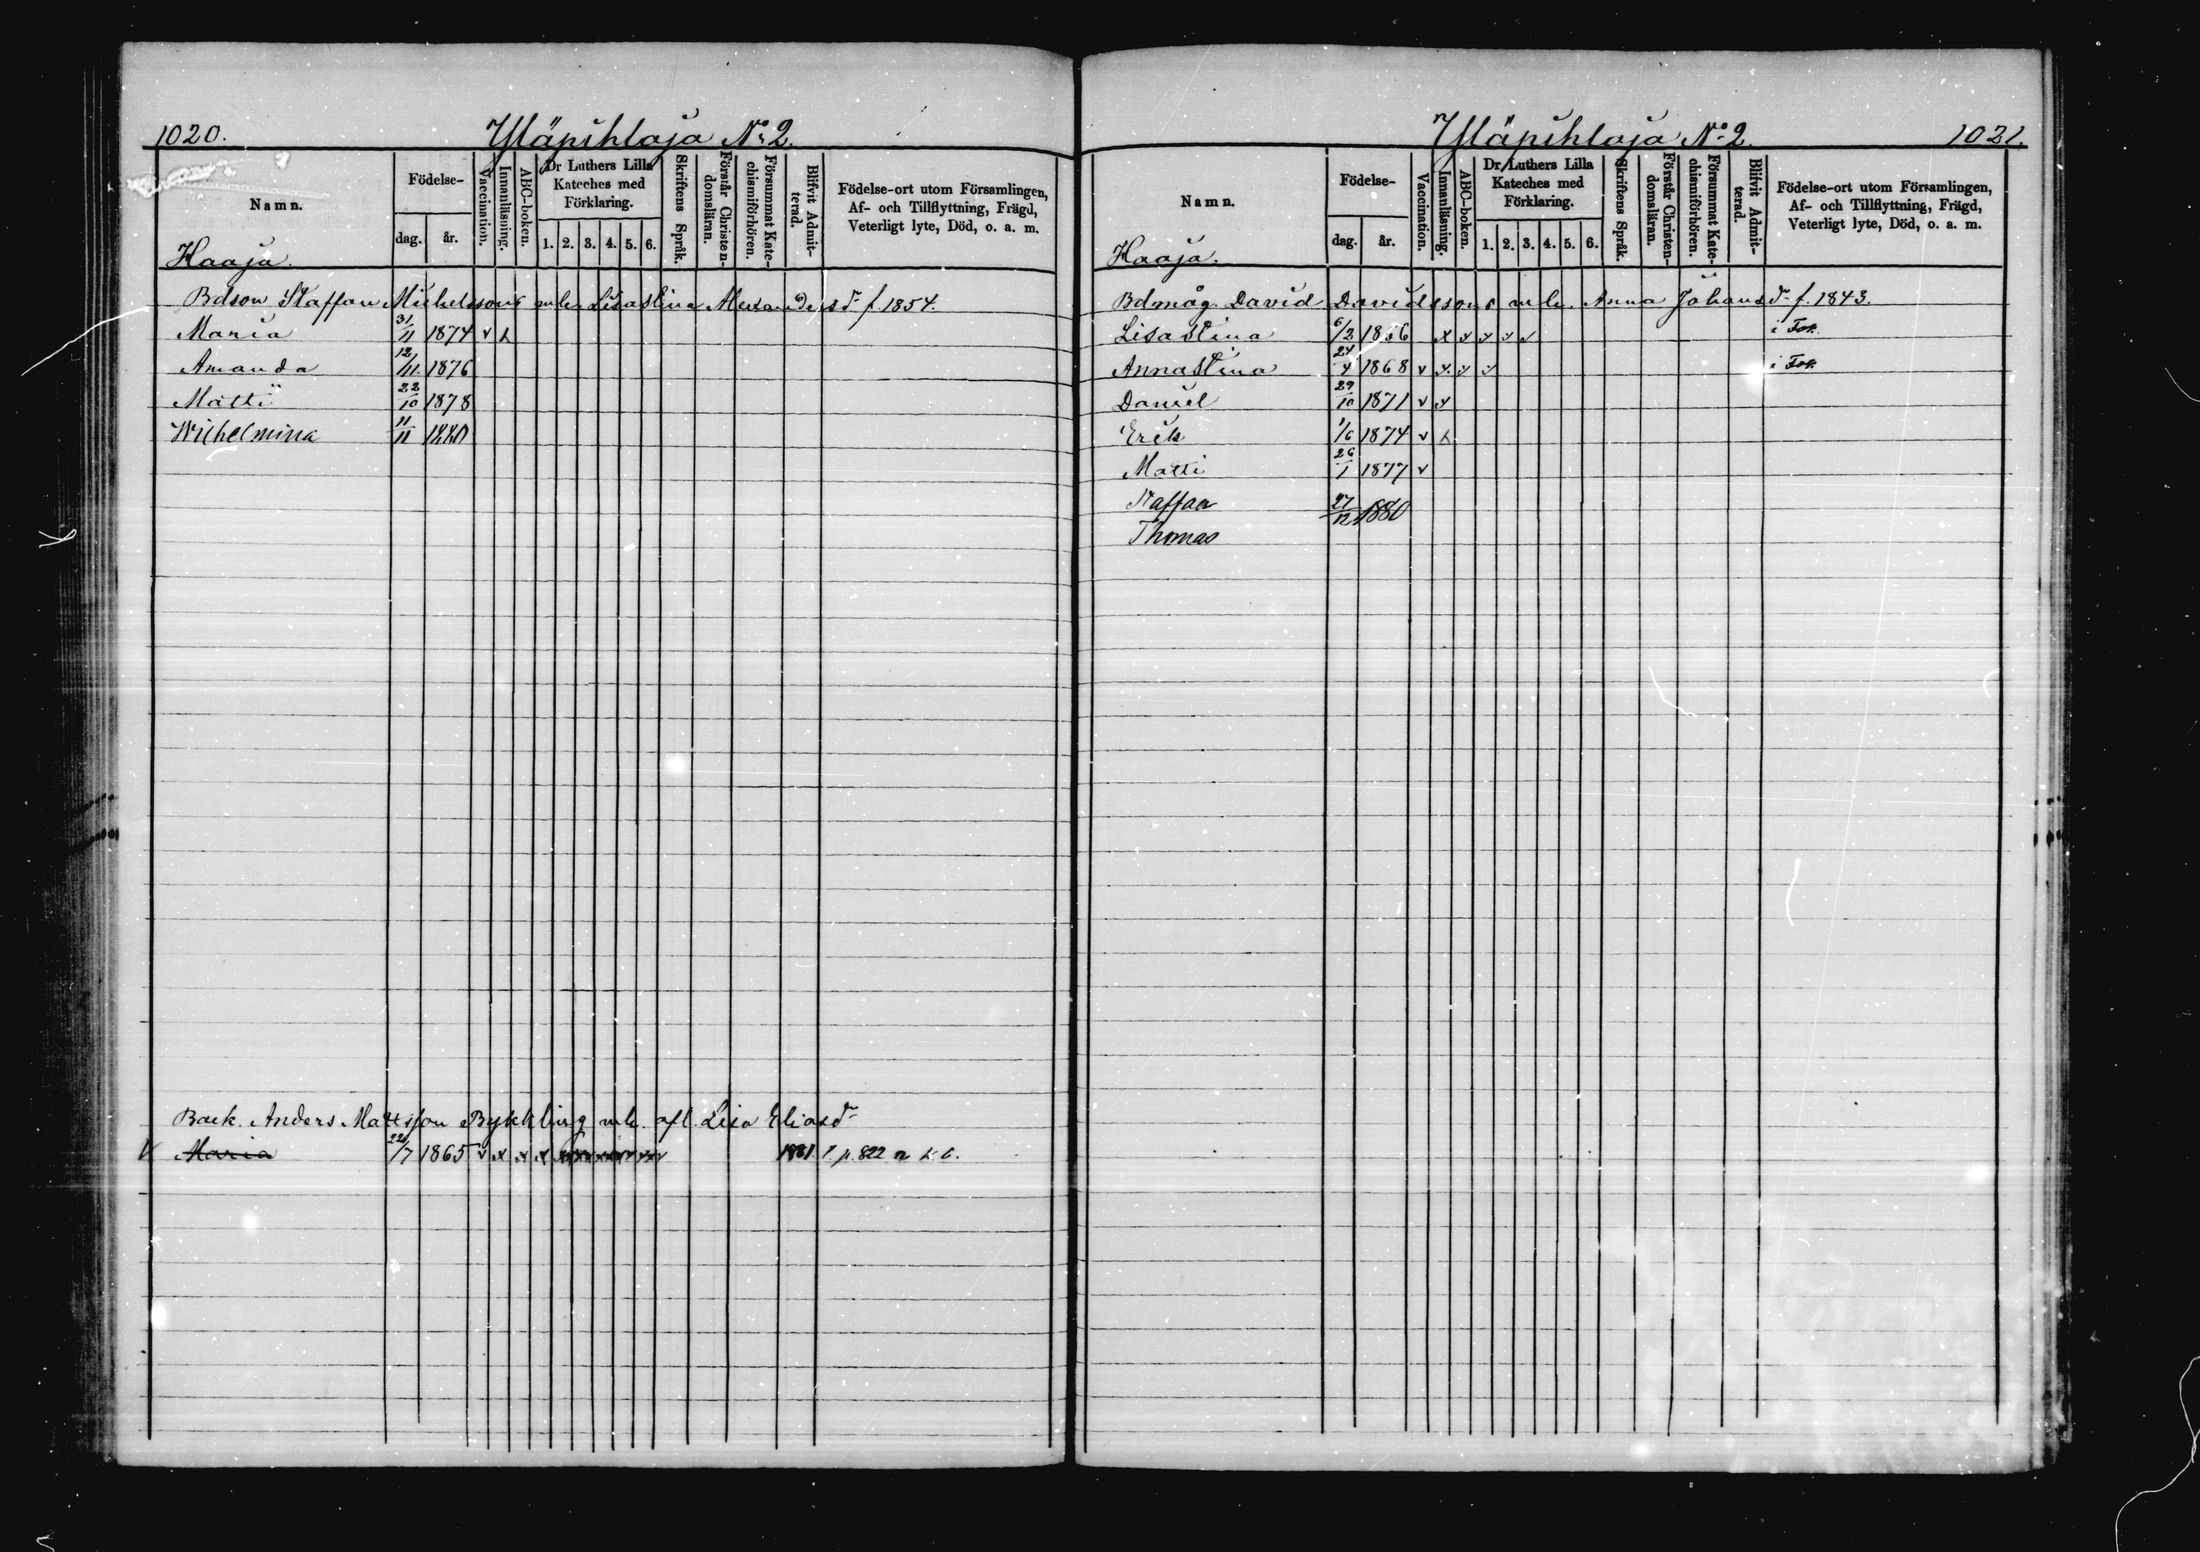 1020. Yläpihlaja No 2.
Namn. Födelse- dag. år. Vaccination. Innanläsning. ABC-boken. Dr Luthers Lilla Kateches med Förklaring. 1. 2. 3. 4. 5. 6. Skriftens Språk. Förstår Christendomsläran. Försummat Katechismiförhören. Blifvit Admitterad. Födelse-ort utom Församlingen, Af- och Tillflyttning, Frägd, Veterligt lyte, Död, o. a. m.
Haaja.
Bdson Staffan Michelssons m h. Lisastina Alexandersd- f. 1854.
Maria 31/11 1874 v
Amanda 12/11 1876
Matti 22/10 1878
Wilhelmina 11/11 1880
Back. Anders Mattsson Bykkling m h. afl. Lisa Eliasd-
Maria 22/7 1865 v x x x 1881. p. 822 n k. b.
Yläpihlaja No 2. 1021.
Namn. Födelse- dag. år. Vaccination. Innanläsning. ABC-boken. Dr Luthers Lilla Kateches med Förklaring. 1. 2. 3. 4. 5. 6. Skriftens Språk. Förstår Christendomsläran. Försummat Katechismiförhören. Blifvit Admitterad. Födelse-ort utom Församlingen, Af- och Tillflyttning, Frägd, Veterligt lyte, Död, o. a. m.
Haaja.
Bdmåg. David Davidssons m h. Anna Johansd- f. 1843.
Lisastina 6/2 1866 x x x x x i
Annastina 24/4 1868 v x x x i
Daniel 29/10 1871 v x
Erik 1/6 1874 v
Matti 26/1 1877 v
Staffan 27/12 1880
Thomas